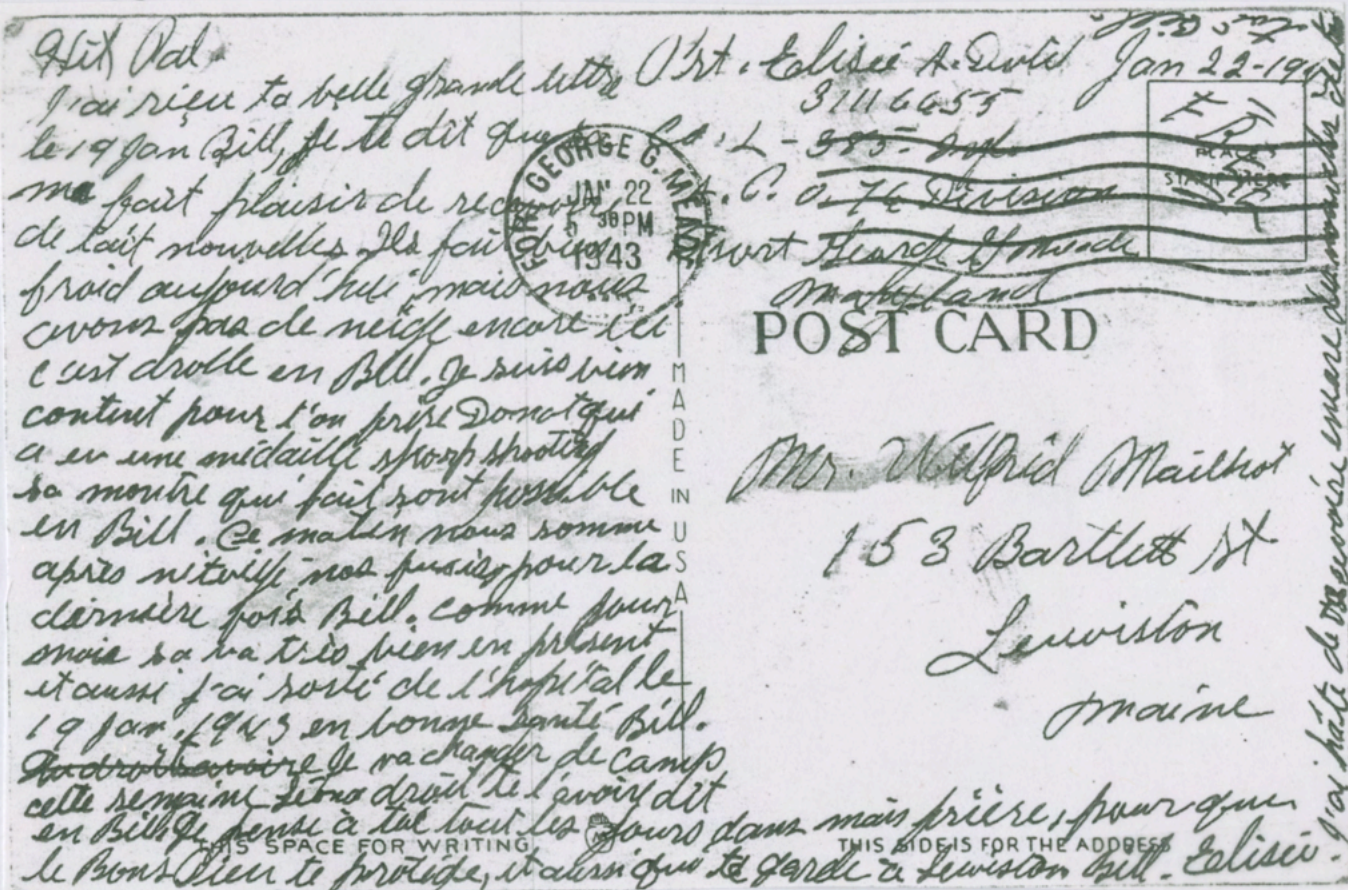 Hix Pal
J'ai riçu ta belle grande lettre
le 19 Jan Bill, Je te dit que
ma fait plaisir de
de tait nouvelles Ils fait
froid aujourd'hui, mais nous
avons pas de neige encore ici
c est drolle en Bill. Je suis bien
contint pour t'on frère Donat qui
a eu une médaille sharp shooting
sa montre qui fait sont possible
en Bill. Ce maten nous somme
après niteiye nos fusis, pour la
dernière fois Bill. comme pour
mois sa va très bien en présent
et aussi j'ai sorti de l'hôpital le
19 Jan. 1943 en bonne santé Bill.
Je va changer de camp
cette semaine droit te l'avoir dit
en Bill Je pense à toi tout les jours dans mais prière, pour que
le Bons Dieu te protège, et aussi que te garde à Lewiston Bill. Elisée.
J'ai hâte de
Pvt. Elisée A. David Jan 22-194
31116655
Co. L - 385 - Inf.
A. P. O. 76 Division
Fourt George G Meade
Maryland
FREE
PLACE
STAMP HERE
FORT GEORGE G. MEADE MD.
JAN 22
5 30 PM
1943
POST CARD
MADE IN U.S.A.
Mr. Wilfrid Mailhot
153 Bartlett St
Lewiston
Maine
THIS SPACE FOR WRITING
THIS SIDE IS FOR THE ADDRESS